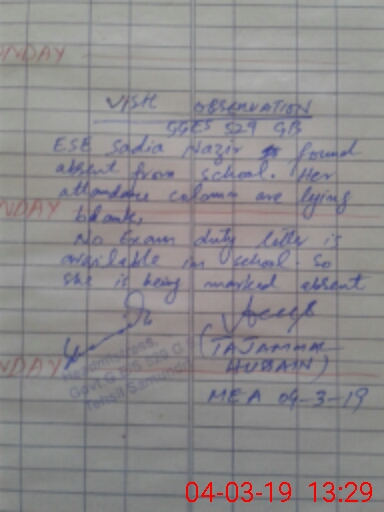 NDAY
VISIT OBSERVATION
GGES 529 GB
ESE Sadia Nazir found
absent from school. Her
attendance column are lying
NDAY
blank,
No Exam duty letter is
available in school. So
she is being marked absent
(TAJAMMAL
HUSSAIN)
NDAY
Headmistress,
Govt. G.E/S 529 G.B
Tehsil Samundri
MEA 04-3-19
04-03-19 13:29